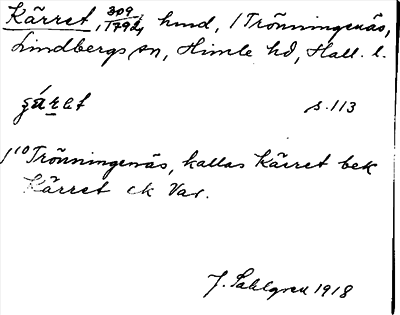 Kärret, 309/1792, hmd, 1 Trönningenäs,
Lindbergs sn, Himle hd, Hall. l.
s. 113
Trönningenäs, kallas Kärret bek
Kärret ck Var.
J. Sahlgren 1918